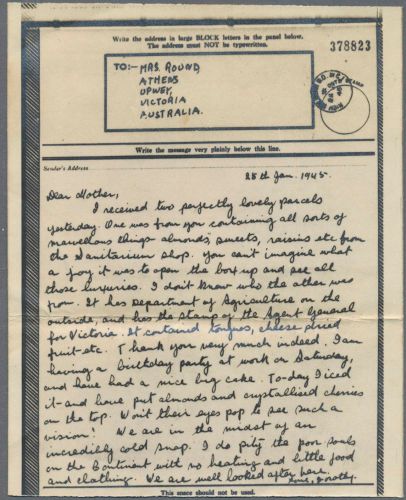 Write the address in large BLOCK letters in the panel below.
The address must NOT be typewritten.
378823
TO:- MRS. ROUND,
ATHENS
UPWEY,
VICTORIA
AUSTRALIA.
Write the message very plainly below this line.
Sender's Address
28th Jan. 1945.
Dear Mother,
I received two perfectly lovely parcels
yesterday. One was from you containing all sorts of
marvellous things - almonds, sweets, raisins etc from
the Sanitarium shop. You can't imagine what
a joy it was to open the box up and see all
those luxuries. I don't know who the other was
from. It has Department of Agriculture on the
outside, and has the stamp of the Agent General
for Victoria. It contained tongues, cheese dried
fruit - etc. Thank you very much indeed. I am
having a birthday party at work on Saturday,
and have had a nice big cake. To-day I iced
it - and have put almonds and crystallised cherries
on the top. Won't their eyes pop to see such a
vision! We are in the midst of an
incredibly cold snap. I do pity the poor souls
on the Continent with no heating and little food
and clothing. We are well looked after here.
Dorothy.
This space should not be used.